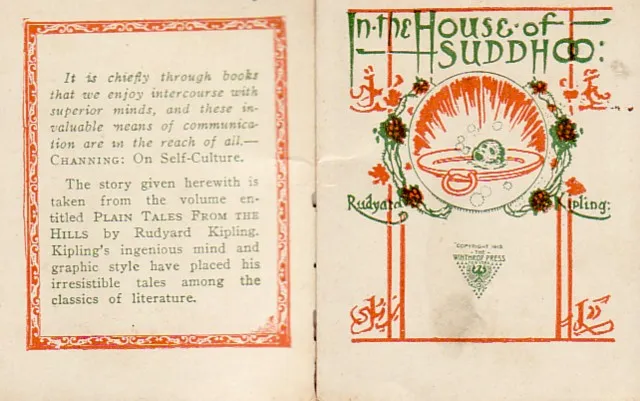 It is chiefly through books
that we enjoy intercourse with
superior minds, and these in-
valuable means of communica-
tion are in the reach of all.—
CHANNING: On Self-Culture.
The story given herewith is
taken from the volume en-
titled PLAIN TALES FROM THE
HILLS by Rudyard Kipling.
Kipling's ingenious mind and
graphic style have placed his
irresistible tales among the
classics of literature.
In·the House·of
SUDDHOO:
Rudyard Kipling:
COPYRIGHT 1912
THE
WINTHROP PRESS